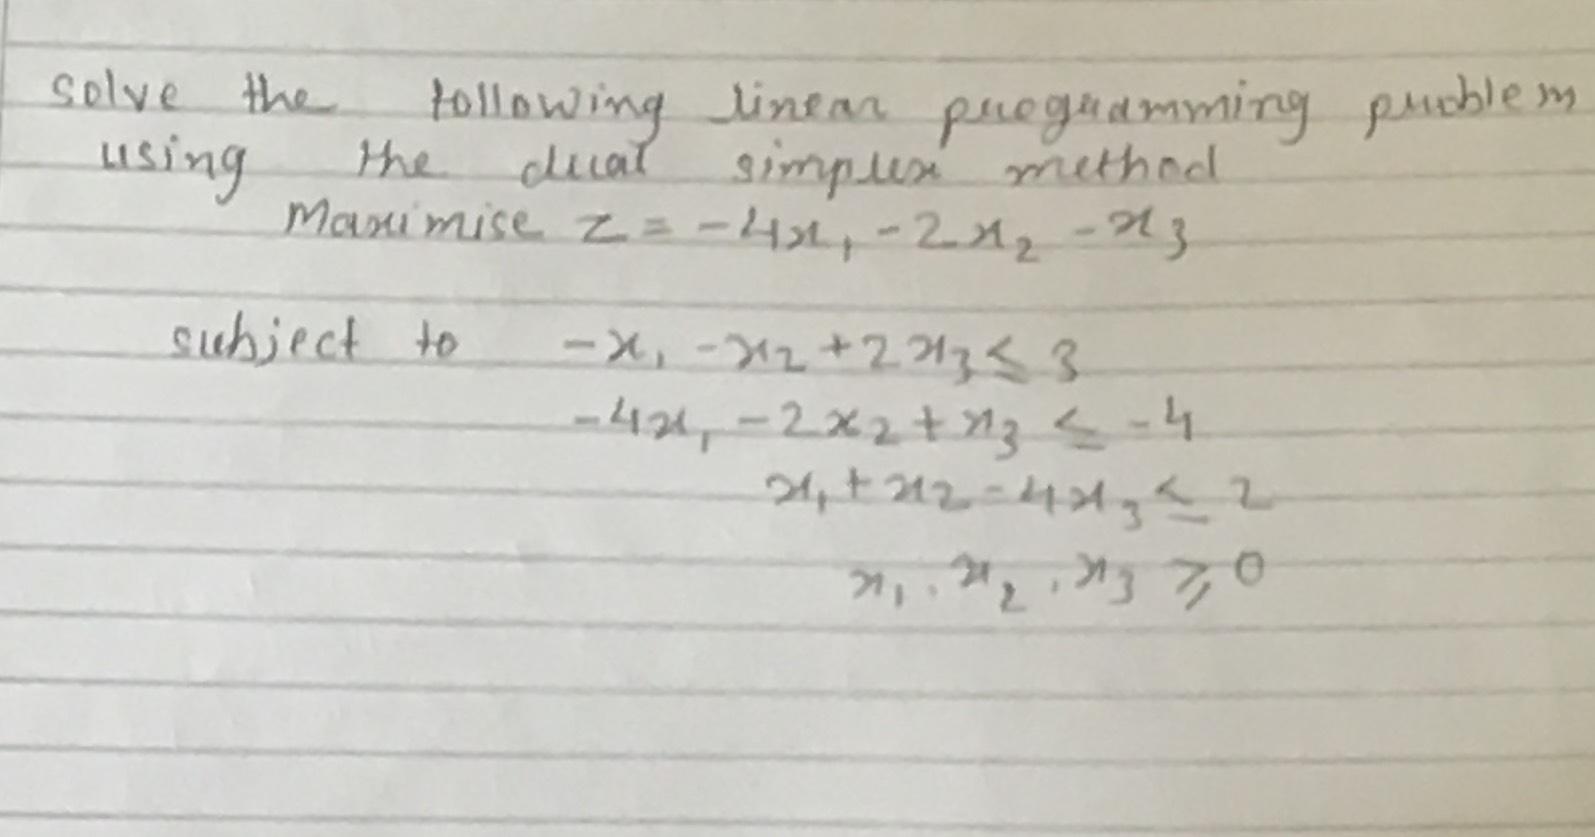 solve the following linear programming problem
using the dual simplex method
Maximise z = -4x₁ - 2x₂ - x₃
subject to -x₁ - x₂ + 2x₃ ≤ 3
-4x₁ - 2x₂ + x₃ ≤ -4
x₁ + x₂ - 4x₃ ≤ 2
x₁, x₂, x₃ ≥ 0